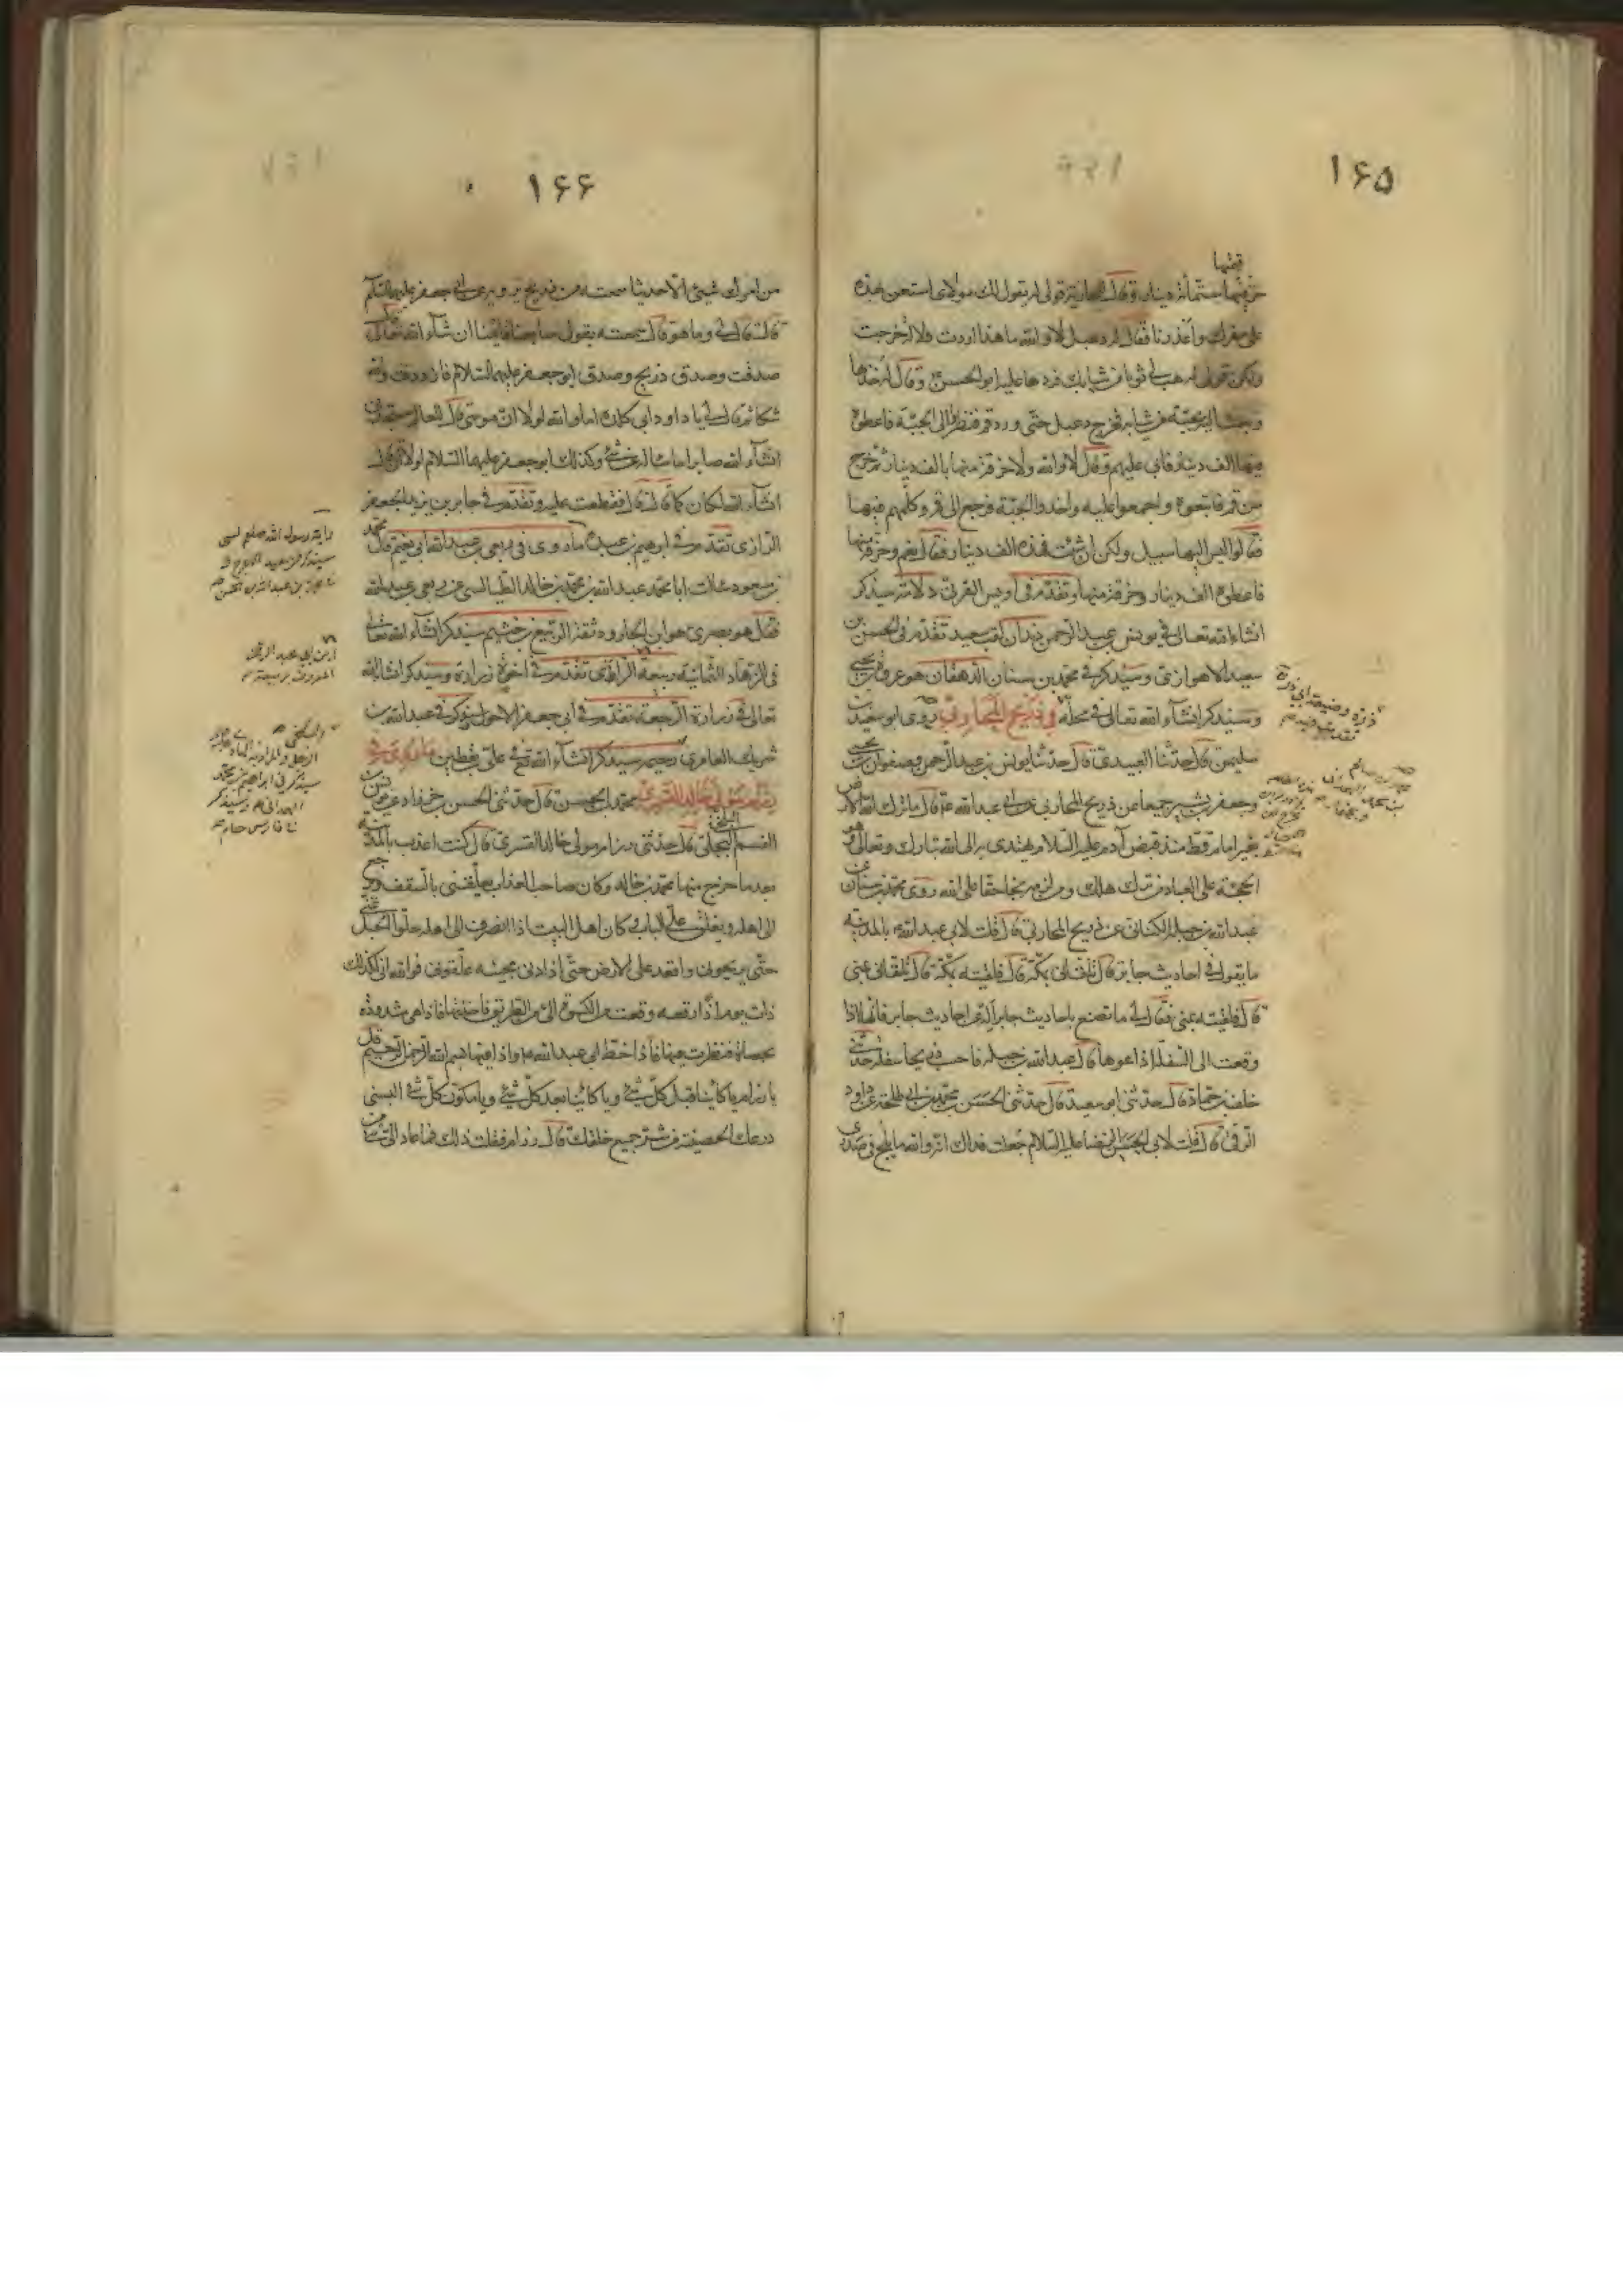 ١۶۵
قيمتها
خز فيها ستمائة دينار وقال للجارية قولي له يقول لك مولاي استعن بهذه
على سفرك واعذرنا فقال له دعبل لا والله ما هذا اردت ولا له خرجت
ولكن قولي له هب لي ثوبا من ثيابك فردها عليه ابو الحسن ع وقال له خذها
وبعث اليه بجبة من ثيابه فخرج دعبل حتى ورد قم فنظروا الى الجبة فاعطوه
فيها الف دينار فابى عليهم وقال لا والله ولا خرقة منها بالف دينار ثم خرج
من قم فاتبعوه واجمعوا عليه واخذوا الجبة فرجع الى قم وكلمهم فيها
فقالوا ليس اليها سبيل ولكن ان شئت فهذه الف دينار فقال نعم وخرقة منها
فاعطوه الف دينار وخرقة منها وتقدم في اويس القرني دلالته سيذكر
انشاء الله تعالى في يونس بن عبد الرحمن دندان لقب سعيد تقدم في الحسن بن
سعيد الاهوازي وسيذكر في محمد بن سنان الدهقان هو عروة بن يحيى
وسيذكر انشاء الله تعالى في محله في ذريح المحاربي روى ابو سعيد بن
سليمن قال حدثنا العبيدي قال حدثنا يونس بن عبد الرحمن وصفوان بن يحيى
وجعفر بن بشير جميعا عن ذريح المحاربي عن ابي عبد الله ع قال ما ترك الله الارض
بغير امام قط منذ قبض آدم عليه السلام يهتدى به الى الله تبارك وتعالى وهو
الحجة على العباد من تركه هلك ومن لزمه نجا حقا على الله روى محمد بن سنان عن
عبد الله بن جبلة الكناني عن ذريح المحاربي قال قلت لابي عبد الله ع بالمدينة
ما يقول في احاديث جابر قال تلقاني بمكة قال فلقيته بمكة قال تلقاني بمنى
قال فلقيته بمنى فقال لي ما تصنع باحاديث جابر اله عن احاديث جابر فانها اذا
وقعت الى السفلة اذاعوها قال عبد الله بن جبلة فاحسب ذريحا سفلة حدثني
خلف بن حماد قال حدثني ابو سعيد قال حدثني الحسن بن محمد بن ابي طلحة عن داود
الرقي قال قلت لابي الحسن الرضا عليه السلام جعلت فداك انه والله ما يلج في صدري
ذرة وضيعة ابي ذرة
١۶۶
من امرك شيئ الا حديثا سمعته من ذريح يرويه عن ابي جعفر عليه السلام
قال لي وما هو قال سمعته يقول سابعنا قائمنا ان شاء الله تعالى قال
صدقت وصدق ذريح وصدق ابو جعفر عليه السلام فازددت والله
شكا ثم قال لي يا داود بن ابي كلدة اما والله لولا ان موسى قال للعالم ستجدني
انشاء الله صابرا ما ساله عن شئ وكذلك ابو جعفر عليهما السلام لولا ان قال
انشاء الله لكان كما قال قال فقطعت عليه وتقدم في جابر بن يزيد الجعفي
الرازي تقدم في ابرهيم بن عبده ما روى في ربعي بن عبد الله ابي نعيم قال محمد
بن مسعود سالت ابا محمد عبد الله بن محمد بن خالد الطيالسي عن ربعي بن عبد الله
فقال هو بصري هو ابن الجارود ثقة الربيع بن خثيم سيذكر انشاء الله تعالى
في الزهاد الثمانية ربيعة الراي تقدم في اخوة زرارة وسيذكر انشاء الله
تعالى في زرارة الرجعة تقدم في ابي جعفر الاحول ويذكر في عبد الله بن
شريك العامري رحيم سيذكر انشاء الله تع في علي بن يقطين ما روى في
رزام مولى خالد القسري محمد بن الحسن قال حدثني الحسن بن خرزاد عن موسى بن
القسم البجلي قال حدثني رزام مولى خالد القسري قال كنت اعذب بالمدينة
بعد ما خرج منها محمد بن خالد وكان صاحب العذاب يعلقني بالسقف ويرجع
الى اهله ويغلق علي الباب وكان اهل البيت اذا انصرف الى اهله حلوا الحبل عني
حتى يريحوني واقعد على الارض حتى اذا دنى مجيئه علقوني فوالله اني لكذلك
ذات يوم اذا رقعة وقعت من الكوة الي من الطريق فاخذتها فاذا هي مشدودة
بحصاة فنظرت فيها فاذا خط ابي عبد الله ع واذا فيها بسم الله الرحمن الرحيم قل
يا رزام يا كائنا قبل كل شئ ويا كائنا بعد كل شئ ويا مكون كل شئ البسني
درعك الحصينة من شر جميع خلقك قال رزام فقلت ذلك فما عاد الي شئ من
راية رسول الله صلعم